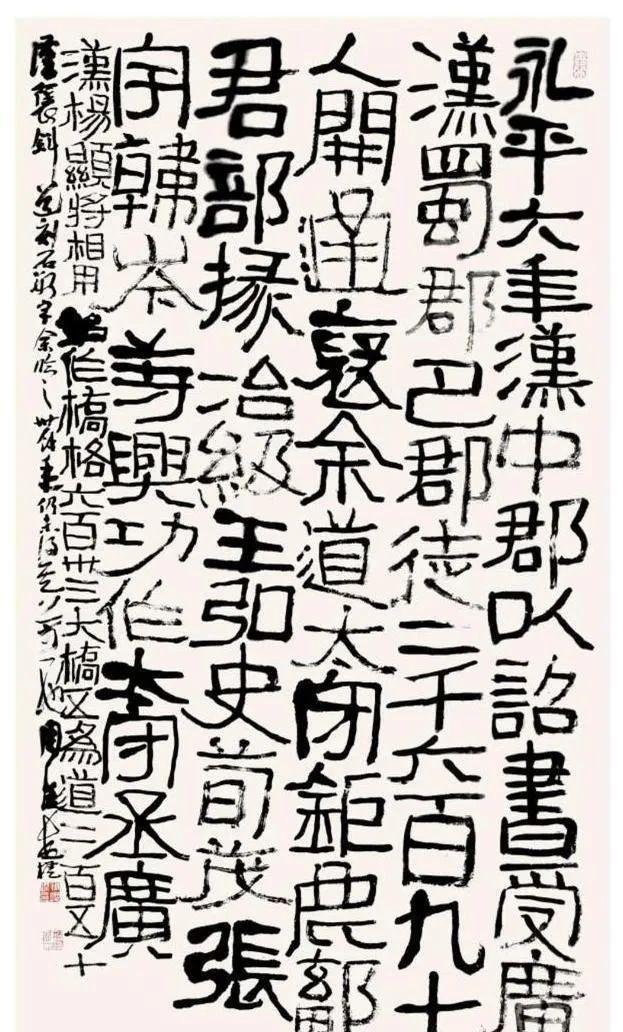 永平六年漢中郡以詔書受廣
漢蜀郡巴郡徒二千六百九十
人開通襃余道太守鉅鹿鄐
君部掾治級王弘史荀茂張
宇韓岑等興功作太守丞廣
漢楊顯將相用始作橋格六百卅三大橋五爲道二百五十
漢襃斜道刻石 余臨之